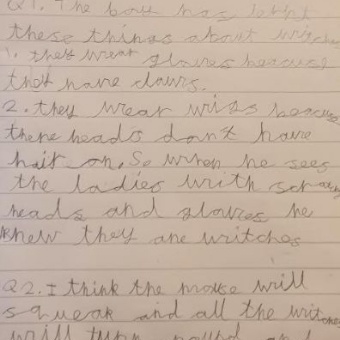 Q1. The boy has learnt
these things about witches
1. they wear gloves because
they have claws.
2. they wear wigs because
there heads don't have
hair on. So when he sees
the ladies with scratchy
heads and gloves he
knew they are witches
Q2. I think the mouse will
squeak and all the witches
will turn round and